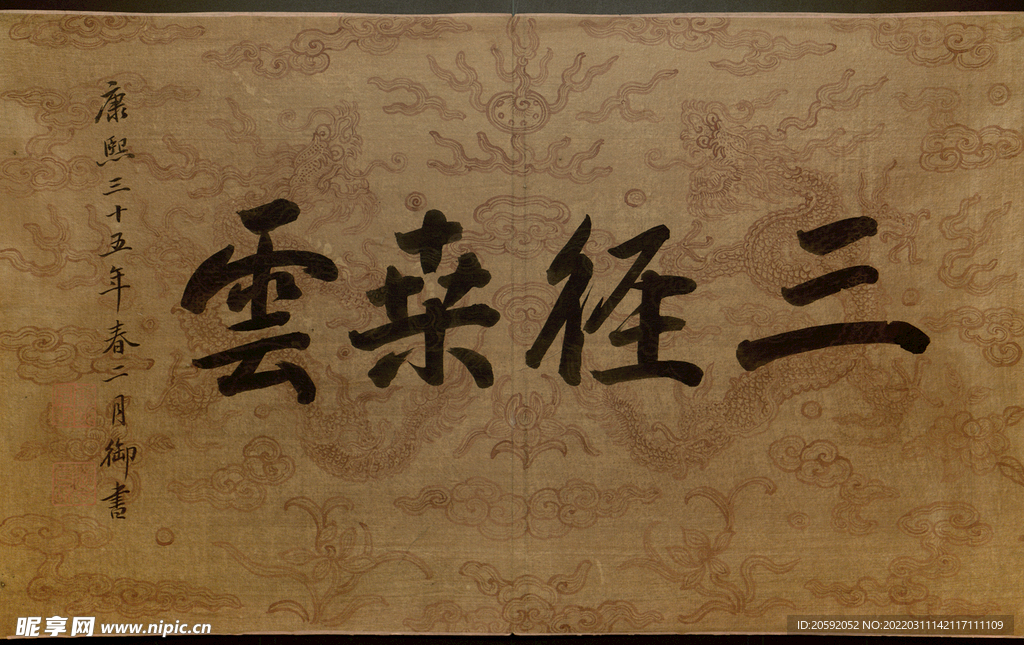 三径桒雲
康熙三十五年春二月御書
昵享网 www.nipic.cn
ID:20592052 NO:20220311142117111109